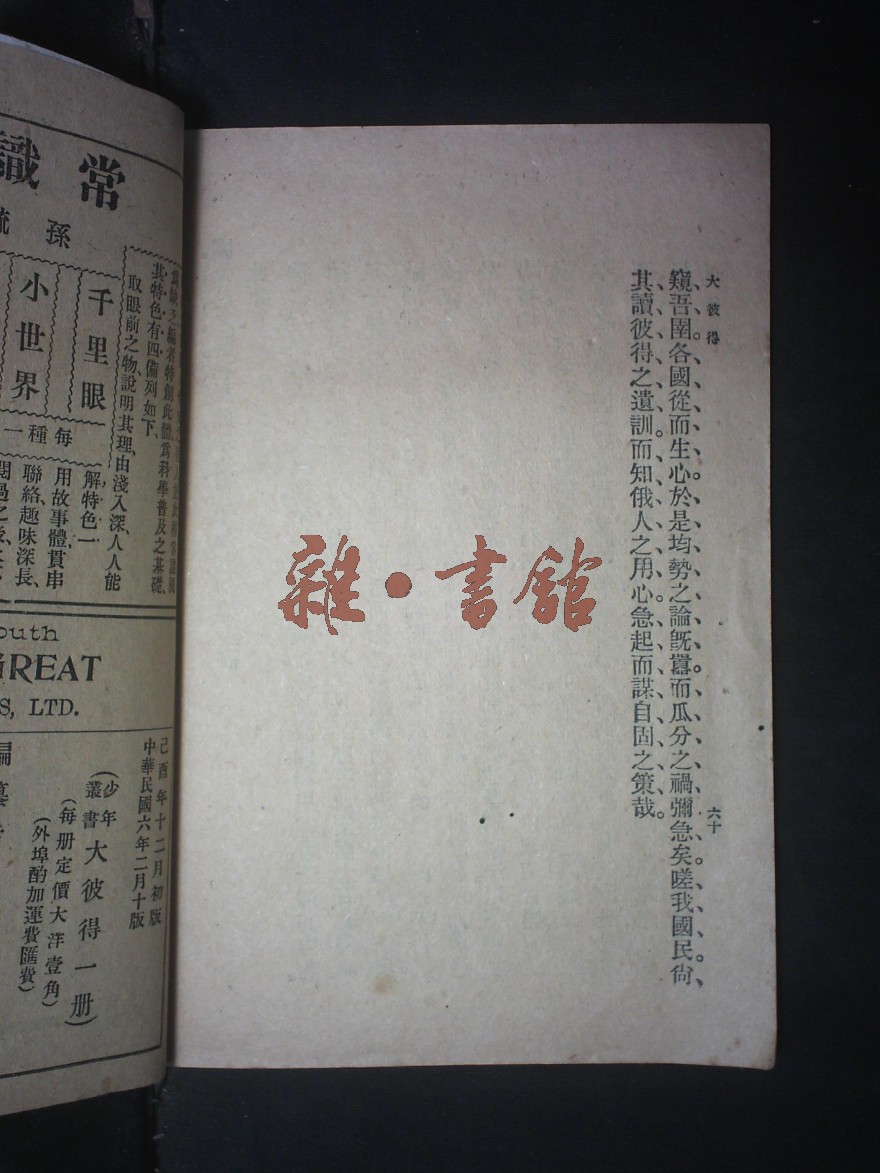 大彼得
六十
窺吾圉各國從而生心於是均勢之論旣囂而瓜分之禍彌急矣嗟我國民尙
其讀彼得之遺訓而知俄人之用心急起而謀自固之策哉
雜·書館
常識
孫毓
其特色有四備列如下、
取眼前之物、說明其理、由淺入深、人人能
解特色一
用故事體、貫串
聯絡、趣味深長、
千里眼
小世界
每種一
outh
GREAT
S, LTD.
己酉年十二月初版
中華民國六年二月十版
(少年叢書大彼得一册)
(每册定價大洋壹角)
(外埠酌加運費匯費)